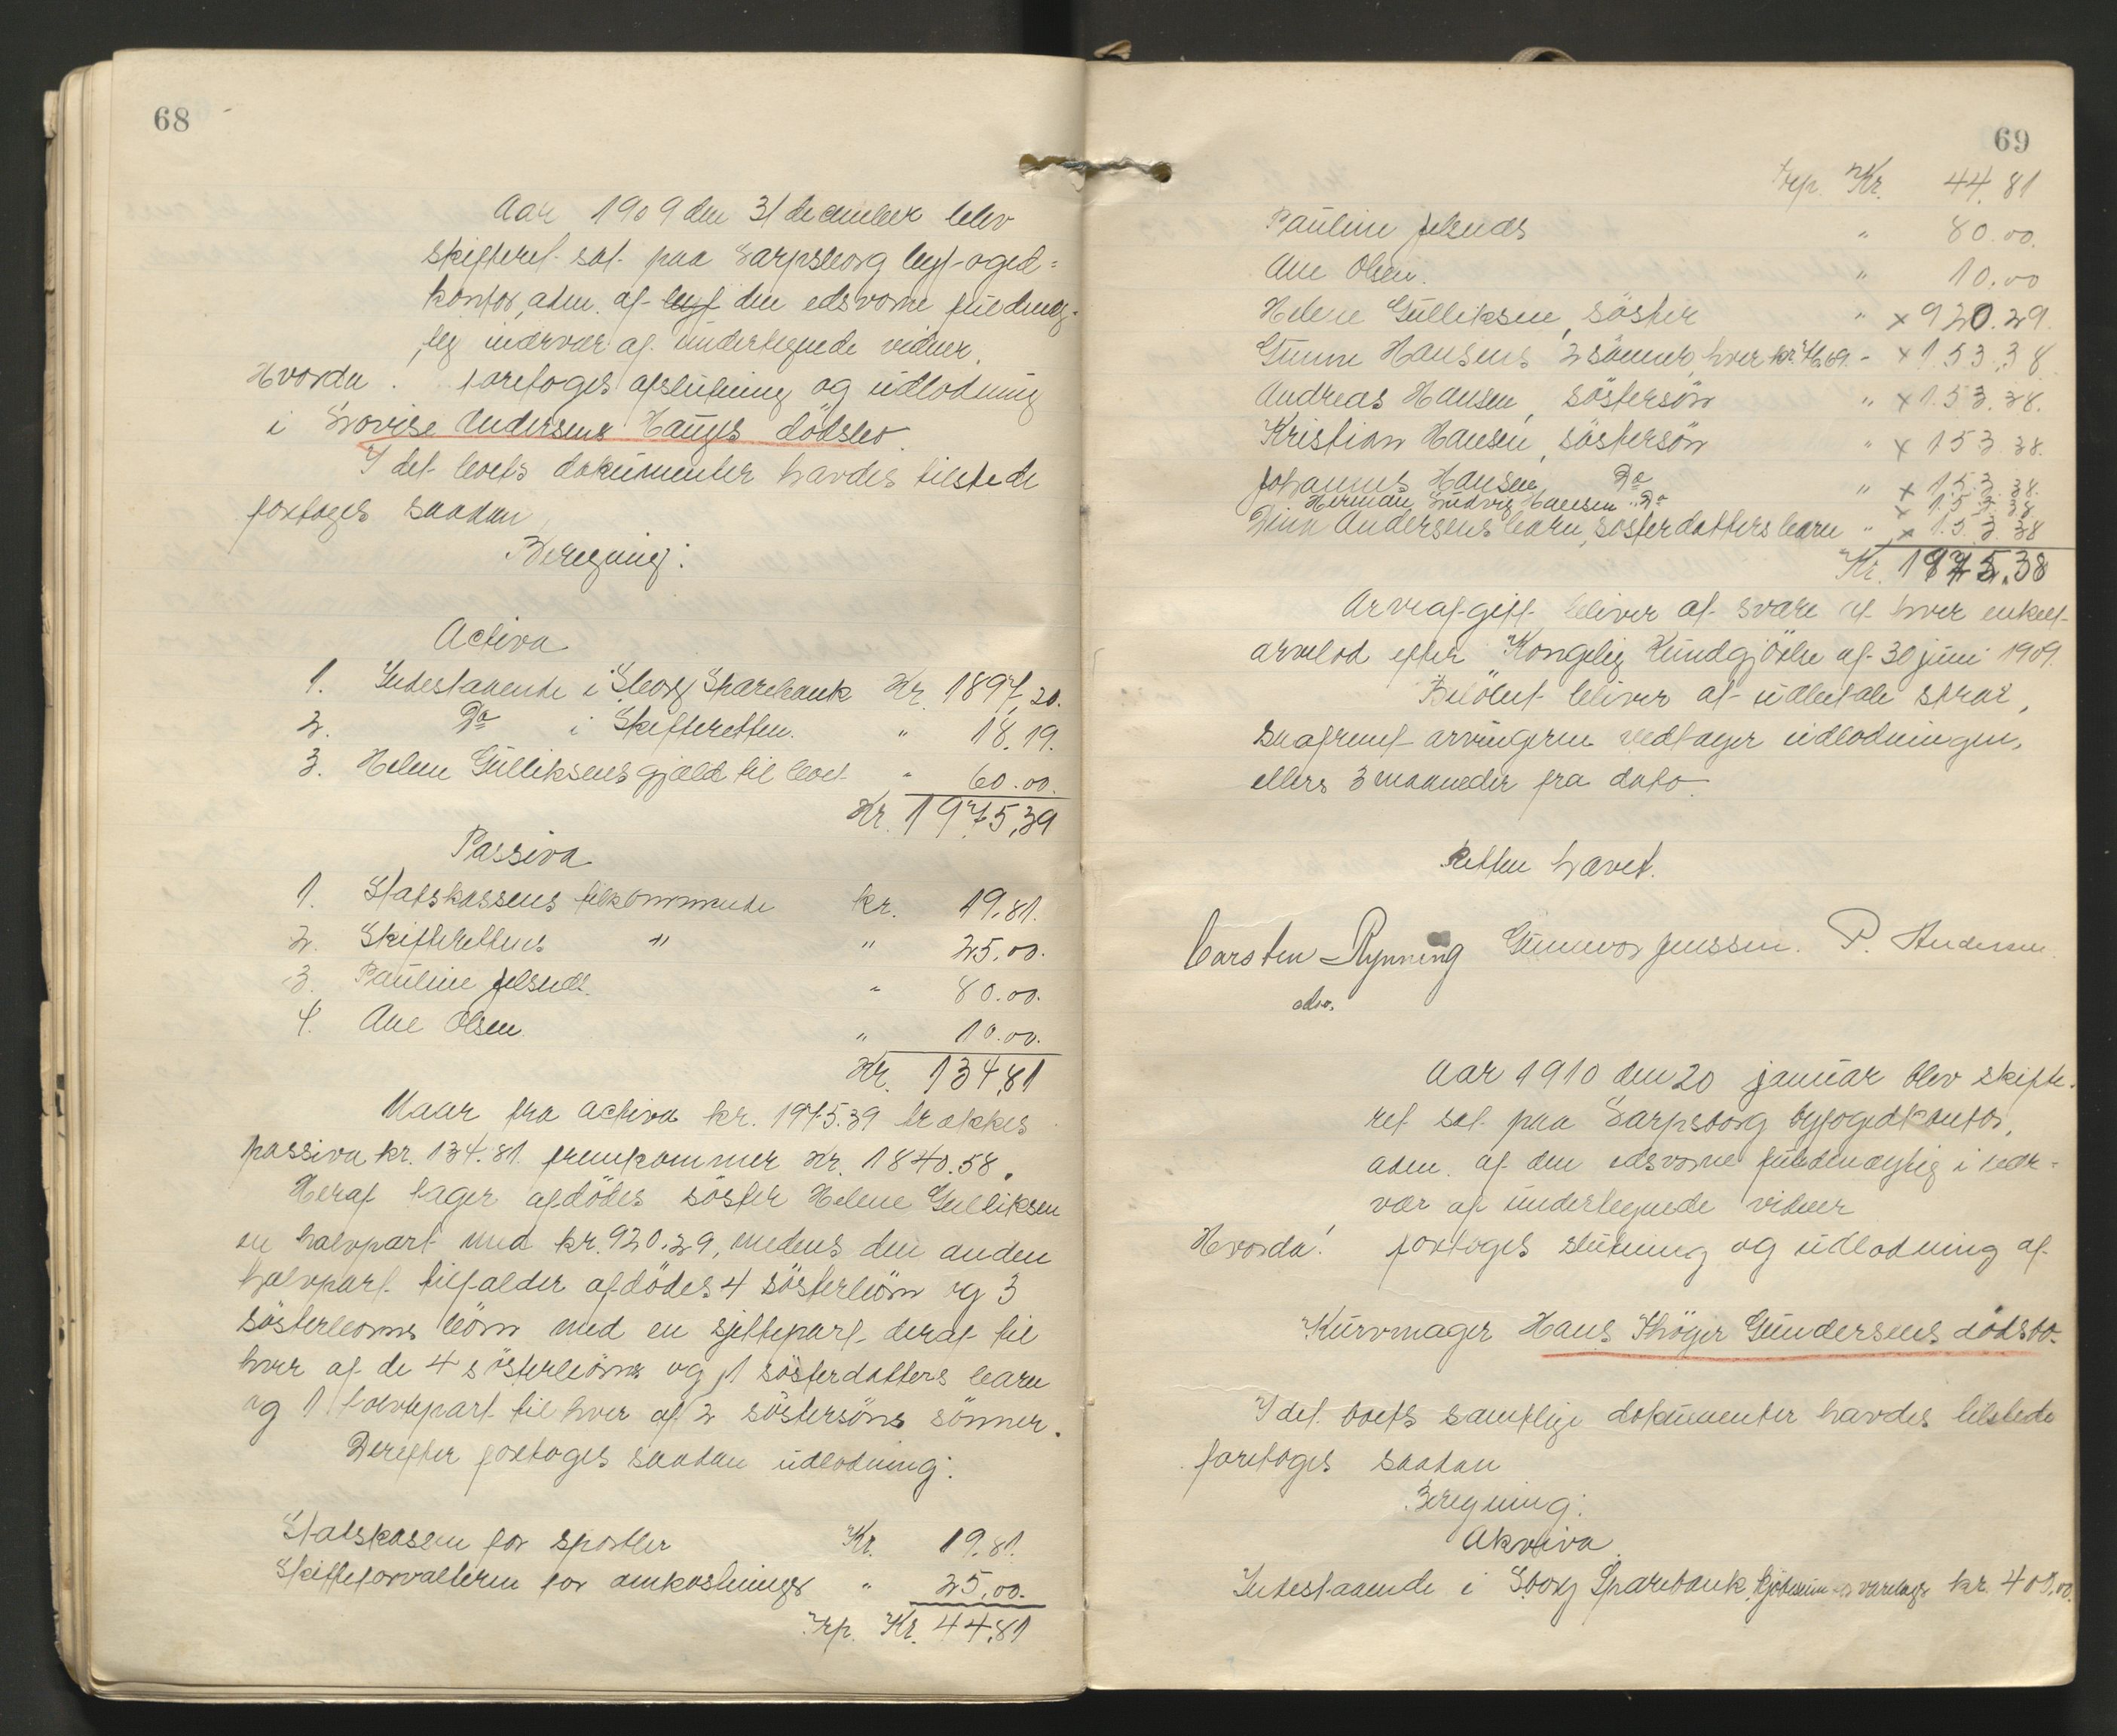 68
Aar 1909 den 31 december blev
skifteret sat paa Sarpsborg byfoged=
kontor, adm. af den edsvorne fuldmæg-
tig i nærvær af undertegnede vidner.
Hvorda: foretoges afslutning og udlodning
i Lovise Andersens Hauges dödsbo.
I det boets dokumenter havdes tilstede
foretoges saadan
Beregning:
Activa
1. Indestaaende i Sborg Sparebank Kr. 1897,20.
2. Do i Skifteretten. " 18.19.
3. Helene Gulliksens gjæld til boet " 60.00.
Kr. 1975,39
Passiva
1. Statskassens tilkommende kr. 19.81.
2. Skifterettens " " 25.00.
3. Pauline " 80.00.
4. Ane Olsen. " 10.00.
Kr. 134,81
Naar fra activa kr. 1975.39 trækkes
passiva kr. 134.81 fremkommer Kr. 1840.58.
Heraf tager afdödes söster Helene Gulliksen
en halvpart med kr. 920.29, medens den anden
halvpart tilfalder afdödes 4 sösterbörn og 3
sösterbørns börn med en sjettepart deraf til
hver af de 4 sösterbörn og 1 sösterdatters barn
og 1 tolvtepart til hver af 2 söstersöns sönner.
Derefter foretoges saadan udlodning:
Statskassen for sportler Kr. 19.81.
Skifteforvalteren for omkostninger " 25.00.
Trp. Kr. 44,81
69
Trp. Kr. 44,81
Pauline " 80.00.
Ane Olsen. " 10.00
Helene Gulliksen, söster " x 920.29.
Hansens 2 sönner, hver kr. 76.69. - x 153.38
Andreas Hansen, söstersön " x 153.38.
Kristian Hansen, söstersön " x 153.38.
Johannes Hansen Do " x 153.38.
Herman Ludvig Hansen Do x 153.38
Andersens barn, sösterdatters barn " x 153.38
Kr. 1975.38
Arveafgift bliver at svare af hver enkelt
arvelod efter Kongelig Kundgjörelse af 30 juni 1909.
Belöbet bliver at udbetale strax,
saafremt arvingerne vedtager udlodningen,
ellers 3 maaneder fra dato.
Retten hævet.
Carsten Rynning Gunnvor Jenssen. P. Andersen.
adm.
Aar 1910 den 20 januar blev skifte-
ret sat paa Sarpsborg byfogedkontor,
adm. af den edsvorne fuldmægtig i nær-
vær af undertegnede vidner
Hvorda: foretoges slutning og udlodning af
Kurvmager Hans Thöger Gundersens dödsbo.
I det boets samtlige dokumenter havdes tilstede
foretoges saadan
Beregning:
Aktiva
Indestaaende i Sborg Sparebank kr. 409,00.